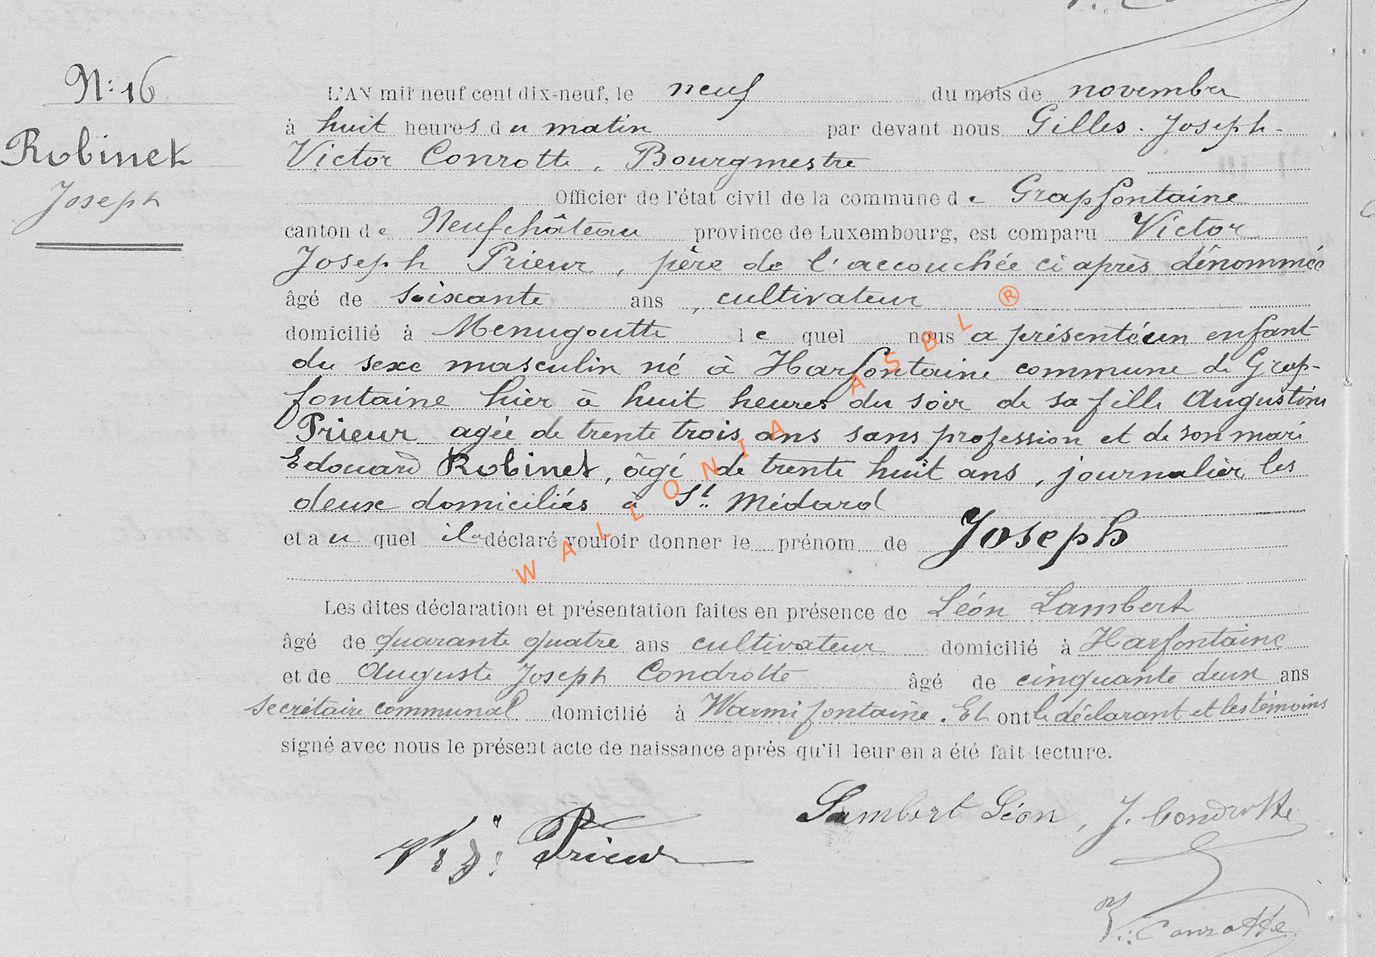 N: 16
Robinet
Joseph
L'AN mil neuf cent dix-neuf, le neuf du mois de novembre
à huit heures du matin par devant nous Gilles-Joseph-
Victor Conrotte, Bourgmestre
Officier de l'état civil de la commune de Grapfontaine
canton de Neufchâteau province de Luxembourg, est comparu Victor
Joseph Prieur, père de l'accouchée ci après dénommée
âgé de soixante ans, cultivateur
domicilié à Menugoutte lequel nous a présenté un enfant
du sexe masculin né à Harfontaine commune de Grap-
fontaine hier à huit heures du soir de sa fille Augustine
Prieur agée de trente trois ans sans profession et de son mari
Edouard Robinet, âgé de trente huit ans, journalier les
deux domiciliés à St. Médard
et auquel il a déclaré vouloir donner le prénom de Joseph
Les dites déclaration et présentation faites en présence de Léon Lambert
âgé de quarante quatre ans cultivateur domicilié à Harfontaine
et de Auguste Joseph Condrotte âgé de cinquante deux ans
secrétaire communal domicilié à Warmifontaine. Et ont le déclarant et les témoins
signé avec nous le présent acte de naissance après qu'il leur en a été fait lecture.
Lambert Léon, J. Condrotte
V. J. Prieur
V. Conrotte
WALLONIA ASBL ®